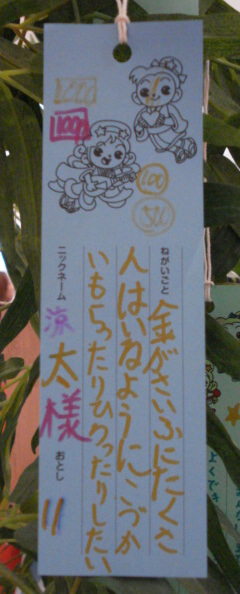 1000
100
500
ねがいごと
金がさいふにたくさ
人はいるようにこづか
いもらったりひろったりしたい
ニックネーム 涼太様
おとし 11